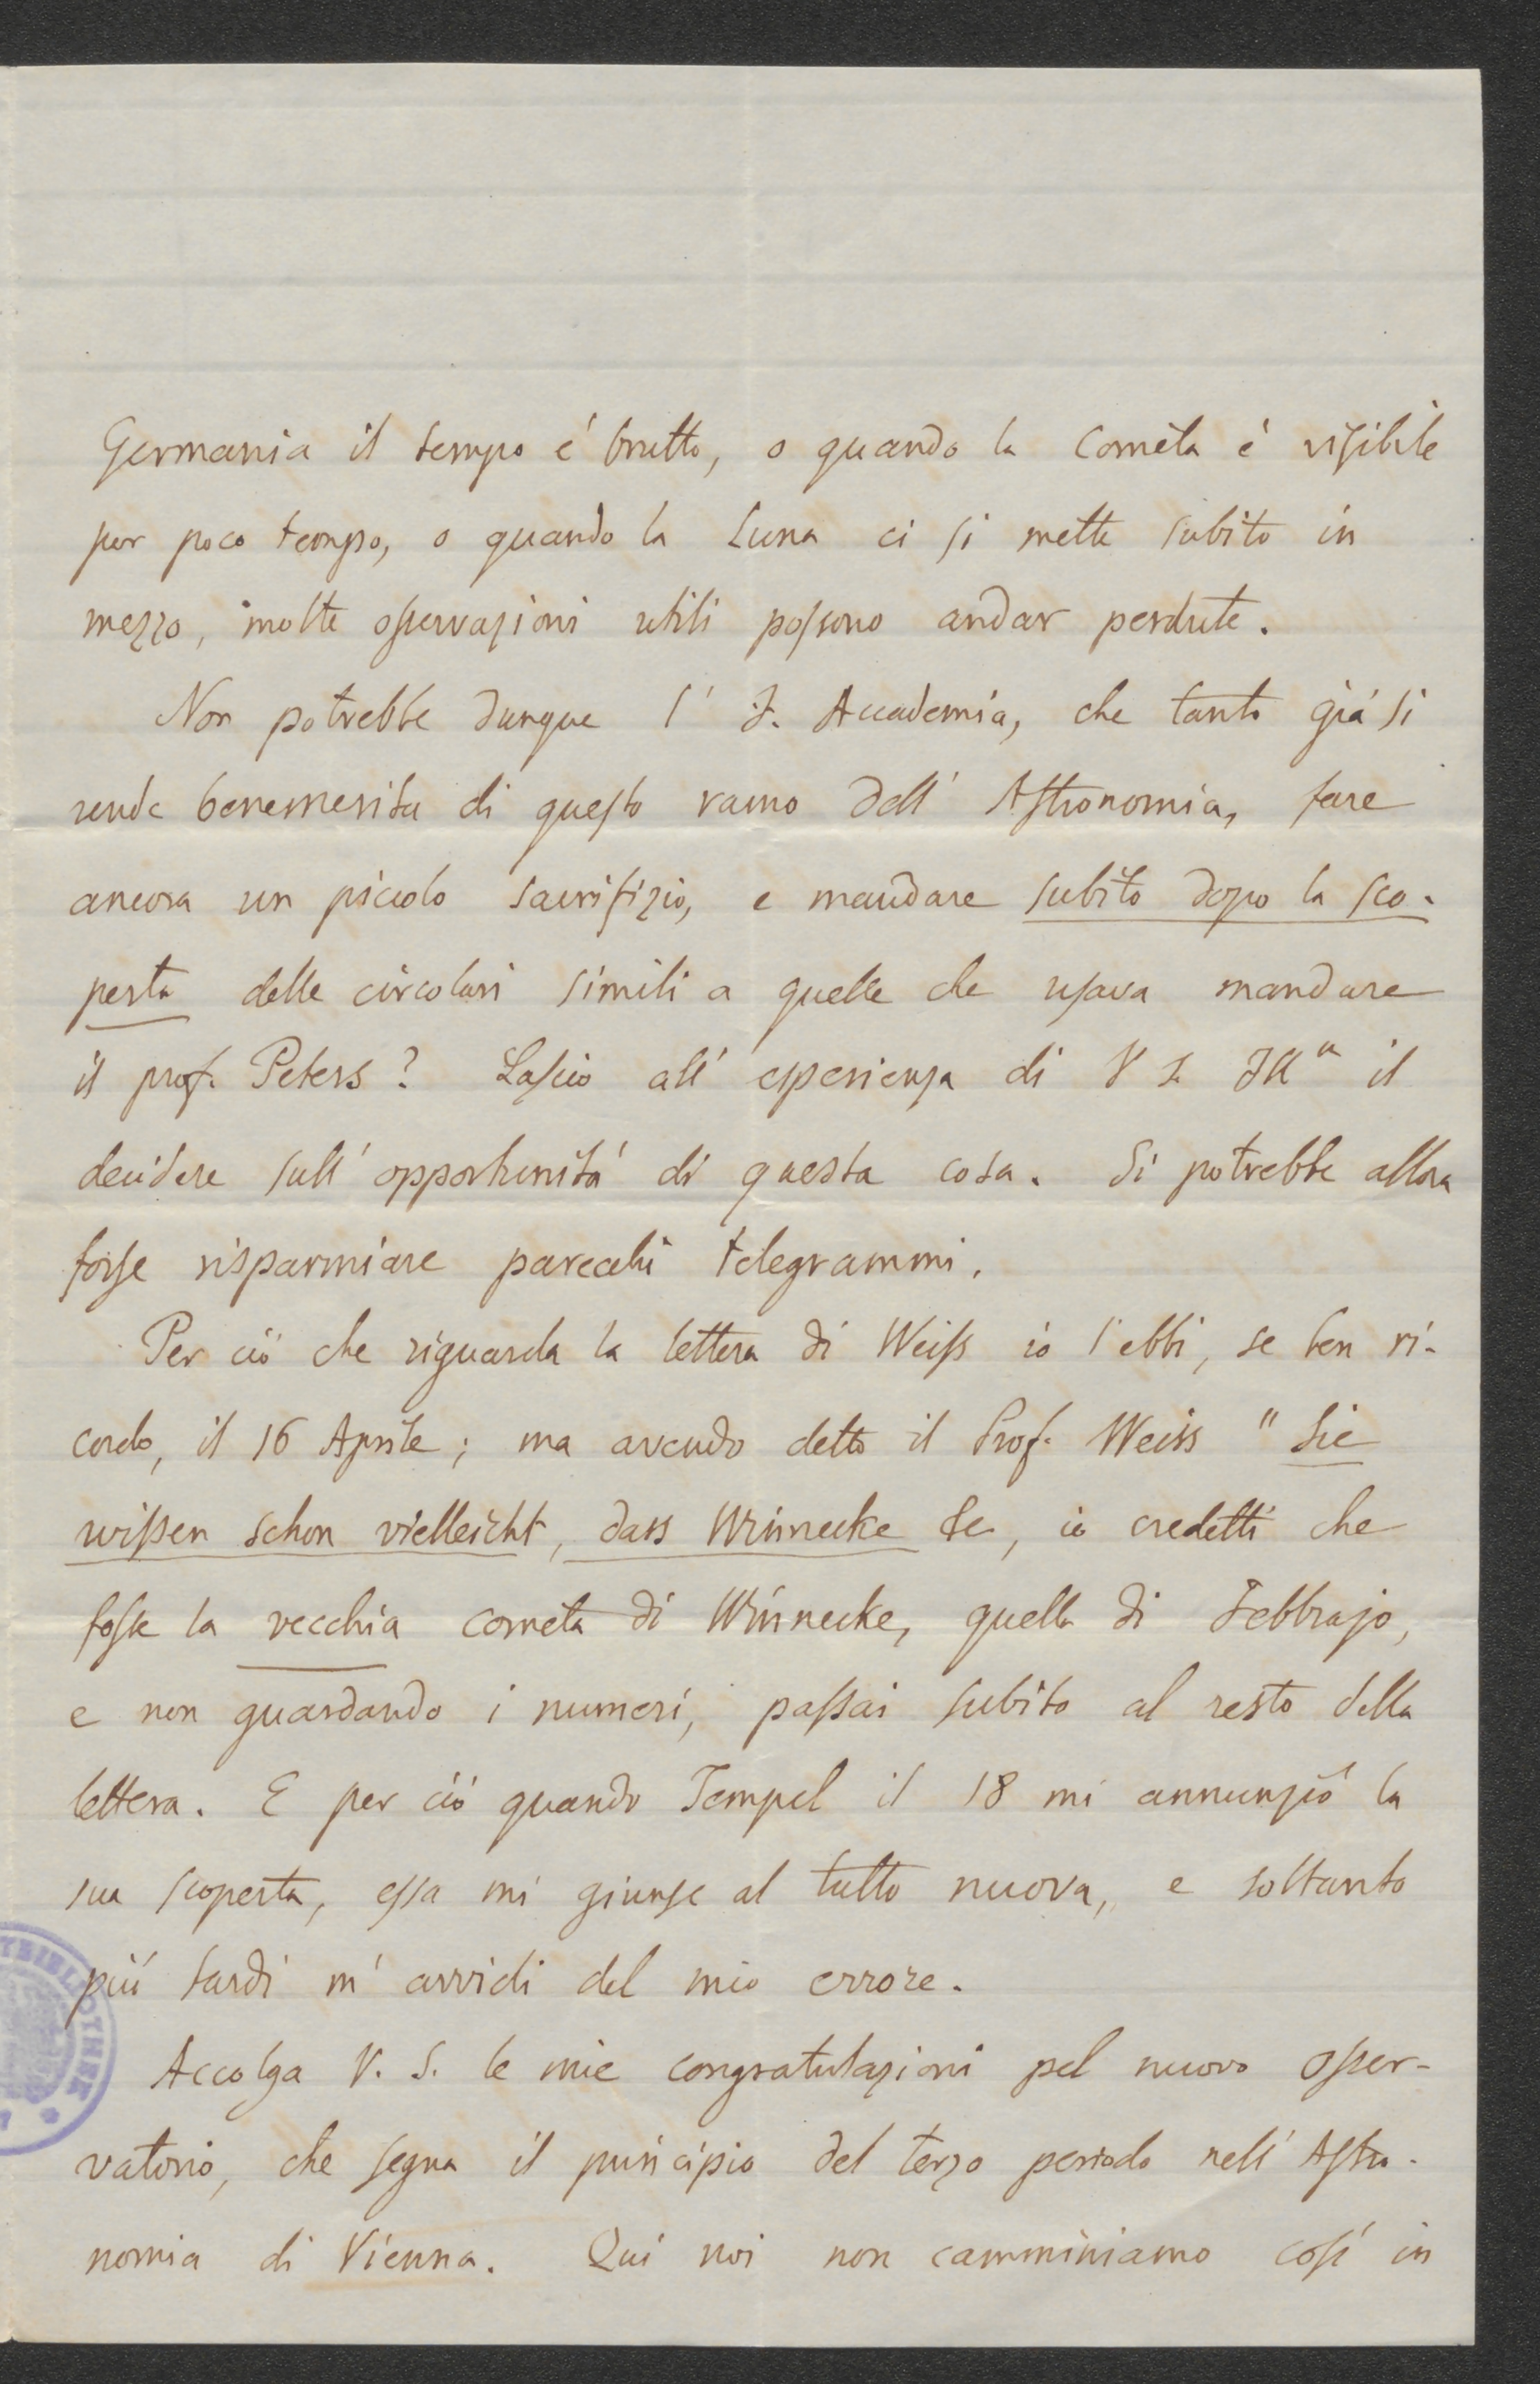 Germania il tempo é brutto, o quando la Cometa é visibile
per poco tempo, o quando la Luna ci si mette subito in
mezzo, molte osservazioni utili possono andar perdute.
Non potrebbe dunque l' I. Accademia, che tanto giá si
rende benemerita di questo ramo dell' Astronomia, fare
ancora un piccolo sacrifizio, e mandare subito dopo la sco-
perta delle circolari simili a quelle che usava mandare
il prof. Peters? Lascio all' esperienza di V S Ill il
decidere sull' opportunitá di questa cosa. Si potrebbe allora
forse risparmiare parecchi telegrammi.
Per ció che riguarda la lettera di Weiss io l'ebbi, se ben ri-
cordo, il 16 Aprile; ma avendo detto il Prof. Weiss "Sie
wissen schon vielleicht, dass Winnecke &c, io credetti che
fosse la vecchia cometa di Winnecke, quella di Febbrajo,
e non guardando i numeri, passai subito al resto della
lettera. E per ció quando Tempel il 18 mi annunzió la
sua scoperta, essa mi giunse al tutto nuova, e soltanto
piú tardi m' avvidi del mio errore.
Accolga V. S. le mie congratulazioni pel nuovo Osser-
vatorio, che segna il principio del terzo periodo nell' Astro-
nomia di Vienna. Qui noi non camminiamo cosí in
THEK